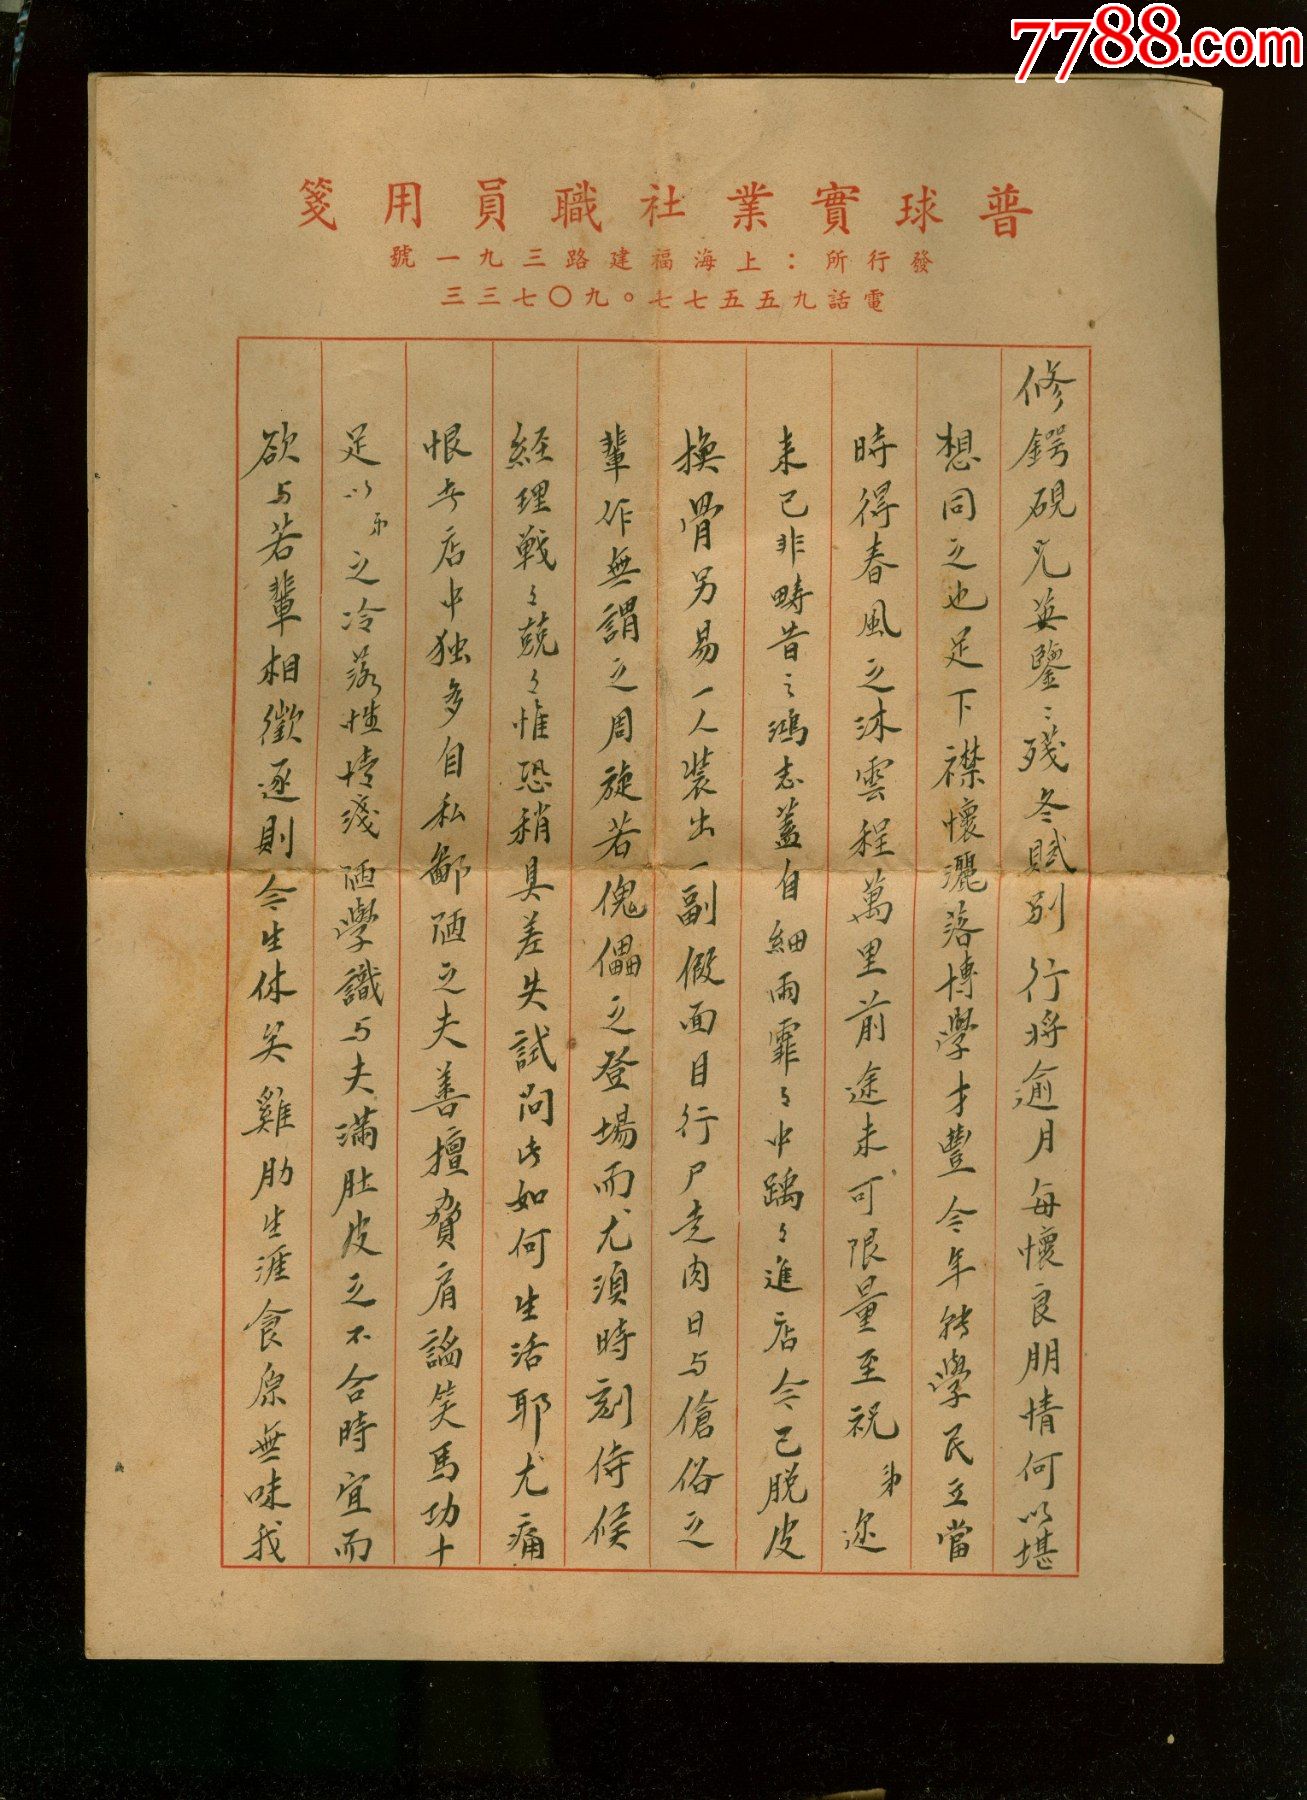 7788.com
普球實業社職員用箋
發行所：上海福建路三九一號
電話九五五七七。九〇七三三
修鍔硯兄英鑒：殘冬賦別行將逾月每懷良朋情何以堪
想同之也足下襟懷灑落博學才豐今年轉學民立當
時得春風之沐雲程萬里前途未可限量至祝弟邇
来已非疇昔之鴻志蓋自細雨霏々中踽々進店今已脱皮
換骨另易一人装出一副假面目行尸走肉日与傖俗之
輩作無謂之周旋若傀儡之登場而尤須時刻侍候
経理戰々兢々惟恐稍具差失試問此如何生活耶尤痛
恨者店中独多自私鄙陋之夫善擅脅肩諂笑馬功十
足以弟之冷落性情淺陋學識与夫滿肚皮之不合時宜而
欲与若輩相徵逐則今生休矣雞肋生涯食原無味我